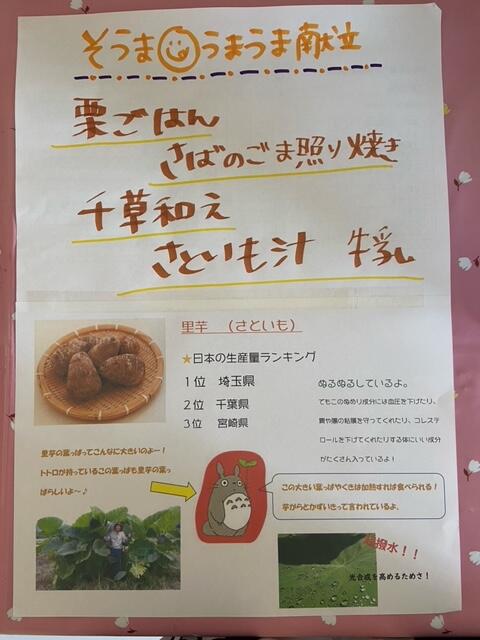 そうま うまうま献立
栗ごはん
さばのごま照り焼き
千草和え
さといも汁 牛乳
里芋 (さといも)
★日本の生産量ランキング
1位 埼玉県
2位 千葉県
3位 宮崎県
ぬるぬるしているよ。
でもこのぬめり成分には血圧を下げたり、
胃や腸の粘膜を守ってくれたり、コレステ
ロールを下げてくれたりする体にいい成分
がたくさん入っているよ！
里芋の葉っぱってこんなに大きいのよー！
トトロが持っているこの葉っぱも里芋の葉っ
ぱらしいよ～♪
この大きい葉っぱやくきは加熱すれば食べられる！
芋がらとかずいきって言われているよ。
撥水！！
光合成を高めるためさ！